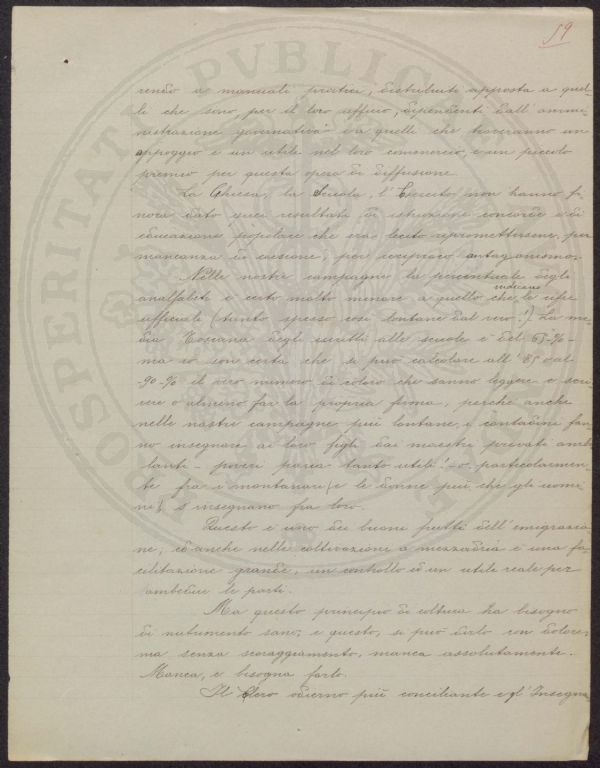 59
rendo a manuali pratici, distribuiti apposta a quel-
li che sono, per il loro ufficio, dipendenti dall'ammi-
nistrazione governativa o a quelli che troveranno un
appoggio e un utile nel loro commercio, e un piccolo
premio per questa opera di diffusione.
La Chiesa, la Scuola, l'Esercito, non hanno fi-
nora dato quei resultati di istruzione concorde e di
educazione popolare che era lecito ripromettersene, per
mancanza di coesione, per reciproco antagonismo.
Nelle nostre campagne la percentuale degli
analfabeti è certo molto minore a quello che indicano le cifre
ufficiali (tanto spesso così lontane dal vero!) La me-
dia Toscana degli iscritti alle scuole è del 65-%-
ma io son certa che si può calcolare all'85 o al
-90-% il vero numero di coloro che sanno leggere e scri-
vere o almeno far la propria firma, perché anche
nelle nostre campagne più lontane, i contadini fan-
no insegnare ai loro figli dai maestri privati ambu-
lanti - poveri paria tanto utili! - o, particolarmen-
te fra i montanari (e le donne più che gli uomi-
ni) s'insegnano fra loro.
Questo è uno dei buoni frutti dell'emigrazio-
ne, ed anche nelle coltivazione a mezzadria è una fa-
cilitazione grande, un controllo ed un utile reale per
ambedue le parti.
Ma questo principio di coltura ha bisogno
di nutrimento sano, e questo, si può dirlo con dolore,
ma senza scoraggiamento, manca assolutamente.
Manca, e bisogna farlo.
Il Clero odierno più conciliante e gl'Insegna
PROSPERITATI PVBLICAE